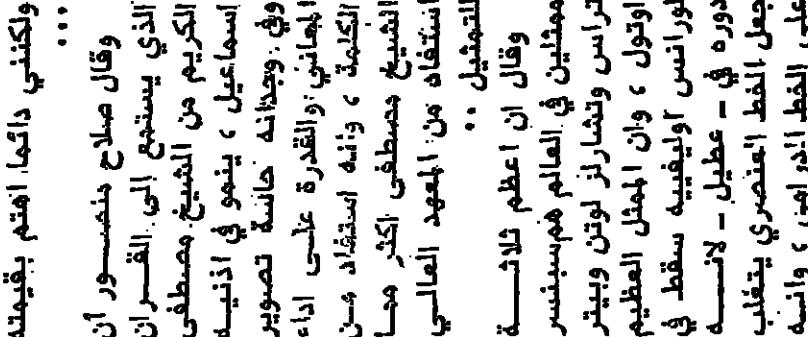 ولكنني دائما اهتم بقيمته
...
وقال صلاح منصـــور أن
الذي يستمع إلى القـــرآن
الكريم من الشيخ مصطفى
اسماعيل ، ينمو في اذنيـــه
وفي وجدانه حاسة تصوير
المعاني والقدرة علـــى اداء
الكلمة ، وانه استفاد مـــن
الشيخ مصطفى اكثر ممـا
استفاد من المعهد العالـــي
للتمثيل ..
وقال ان اعظم ثلاثـــــة
ممثلين في العالم هم سبنسر
تراس وتشارلز لوتن وبيتر
اوتول ، وان الممثل العظيم
لورانس اوليفييه سقط في
دوره في - عطيل - لانـــــه
جعل الخط العنصري يتغلب
على الخط الدرامى ، وانـــه